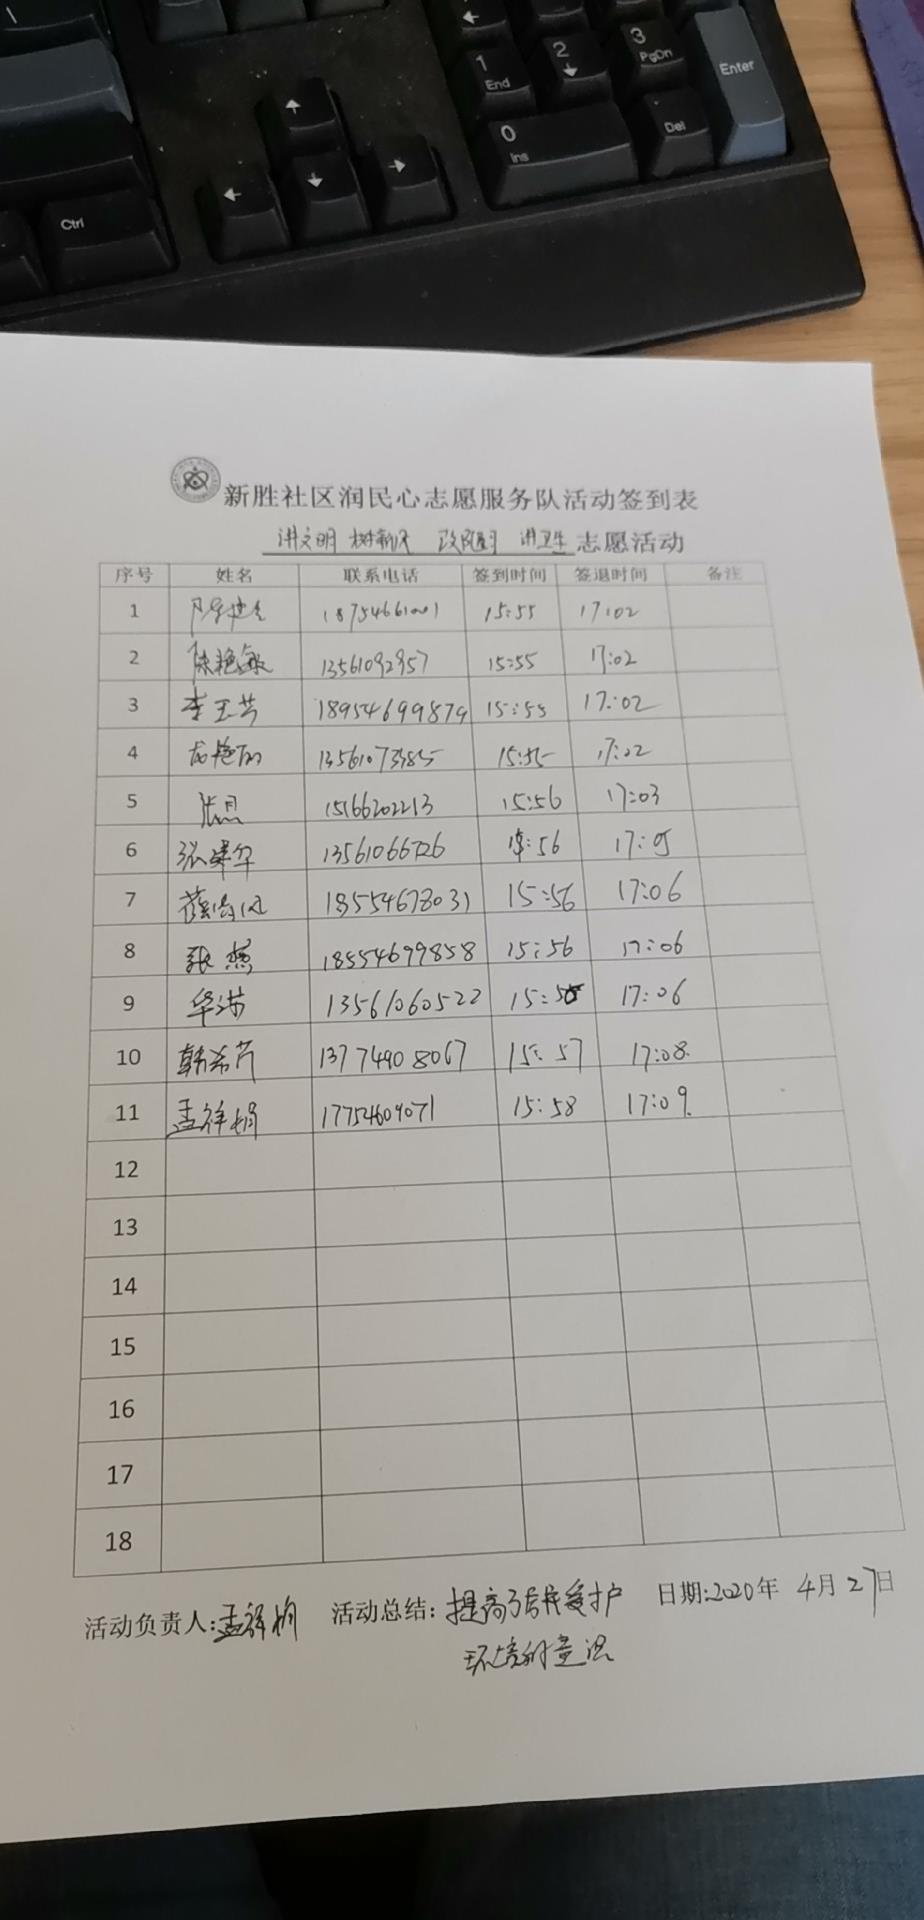 1 End
2
3 PgDn
Enter
0 Ins
Del
Ctrl
新胜社区润民心志愿服务队活动签到表
讲文明 树新风 改陋习 讲卫生 志愿活动
序号 姓名 联系电话 签到时间 签退时间 备注
1 18754661001 15:55 17:02
2 陈艳敏 13561092957 15:55 17:02
3 李玉芳 18954699879 15:55 17:02
4 15:55 17:02
5 15166202213 15:56 17:03
6 13561066726 15:56 17:05
7 18554678031 15:56 17:06
8 张燕 18554699858 15:56 17:06
9 华涝 13561060522 15:56 17:06
10 韩希芹 13774908067 15:57 17:08
11 孟祥娟 17754609071 15:58 17:09
12
13
14
15
16
17
18
活动负责人:孟祥娟 活动总结:提高了居民爱护 日期:2020年 4月27日
环境的意识